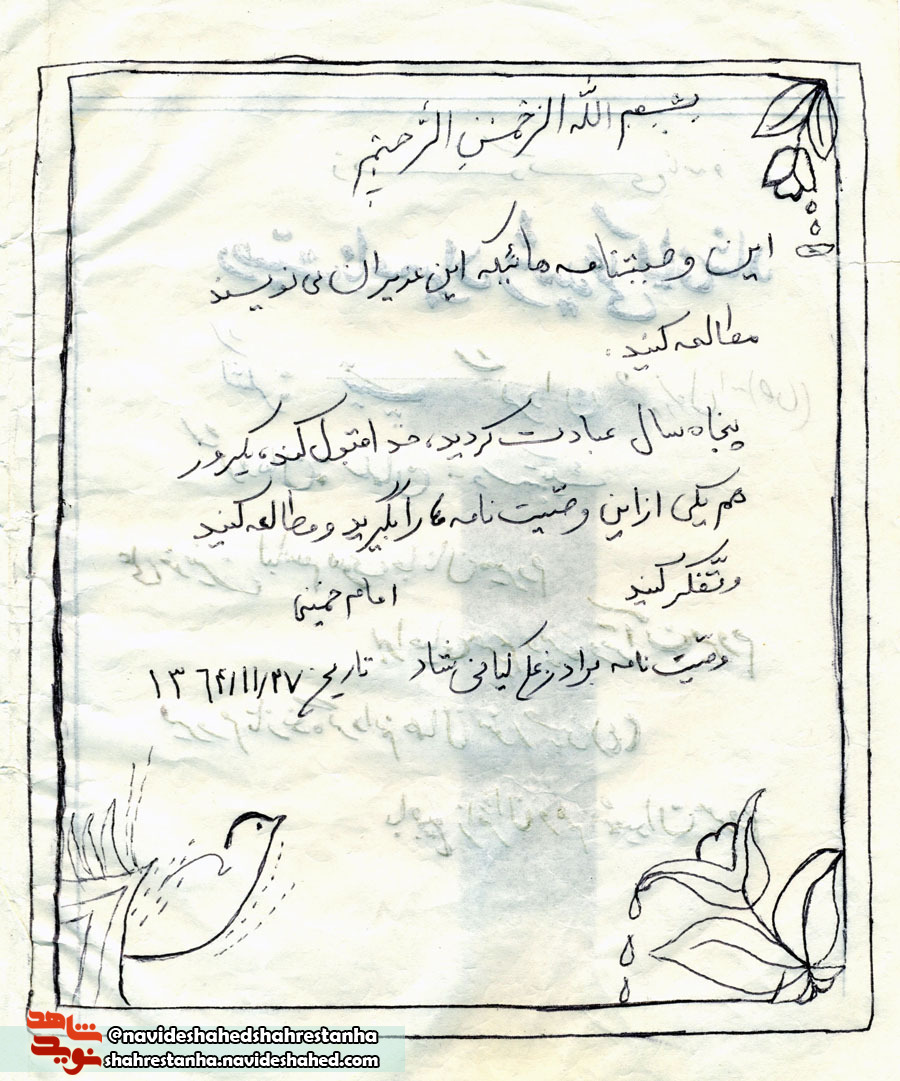 بِسْمِ اللّٰهِ الرَّحْمٰنِ الرَّحیمِ
این وصیتنامه هائیکه این عزیزان می نویسند
مطالعه کنید.
پنجاه سال عبادت کردید، خدا قبول کند، یکروز
هم یکی از این وصّیت نامه ها را بگیرید و مطالعه کنید
و تّفکر کنید
امام خمینی
وصّیت نامه برادر کیانی نژاد تاریخ ۱۳۶۴/۱۱/۲۷
شاهد
نوید
@navideshahedshahrestanha
shahrestanha.navideshahed.com